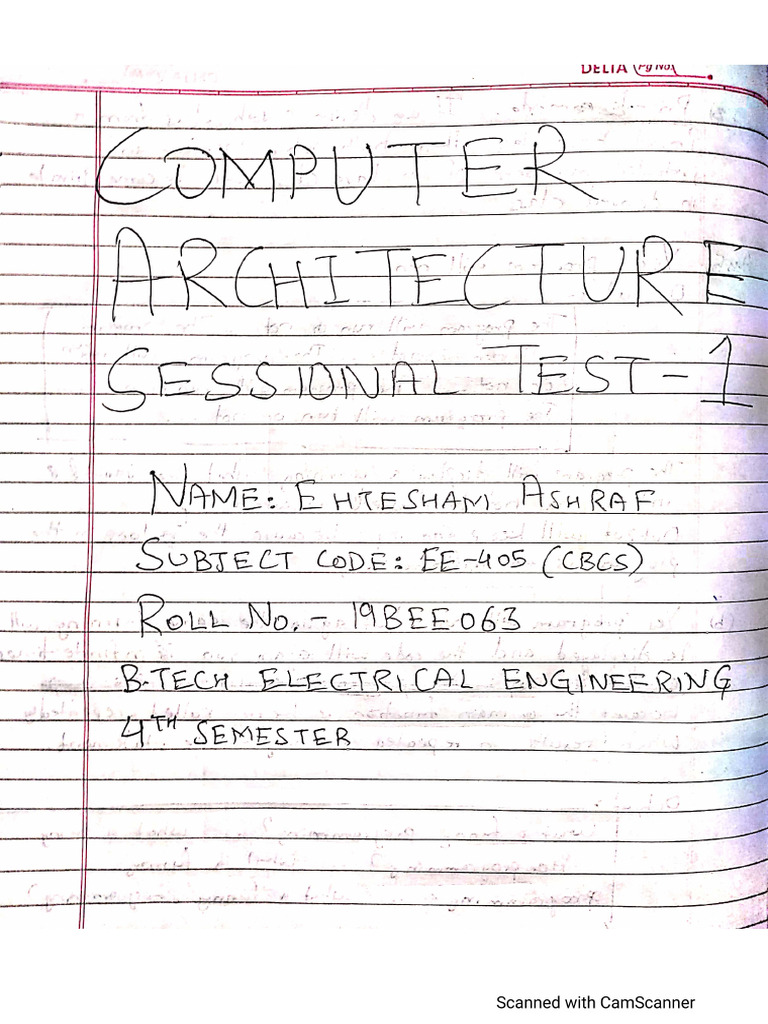 DELTA Pg No.
COMPUTER
ARCHITECTURE
SESSIONAL TEST-1
NAME: EHTESHAM ASHRAF
SUBJECT CODE: EE-405 (CBCS)
ROLL No. - 19BEE063
B.TECH ELECTRICAL ENGINEERING
4TH SEMESTER
Scanned with CamScanner